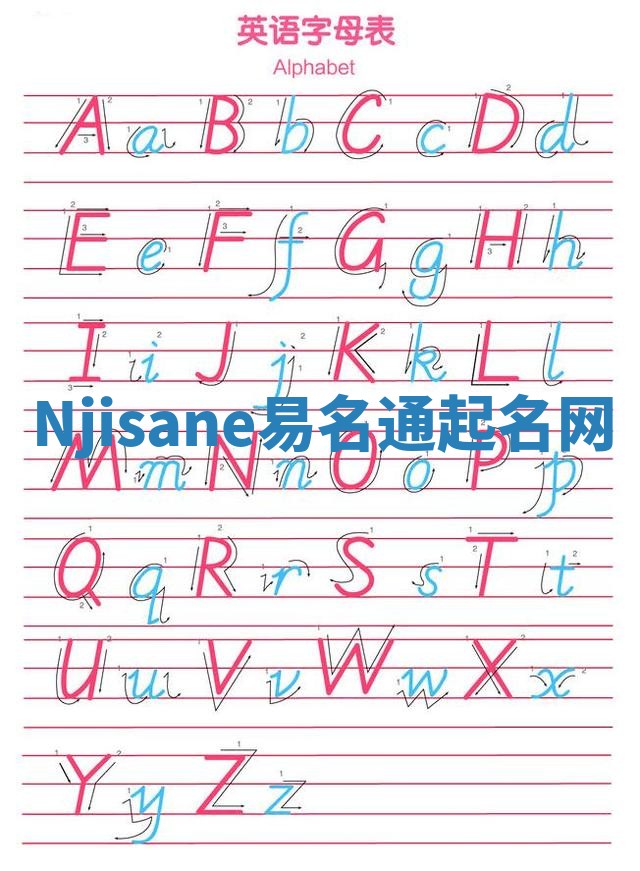 英语字母表
Alphabet
A a B b C c D d
E e F f G g H h
I i J j K k L l
Njisane易名通起名网
M m N n O o P p
Q q R r S s T t
U u V v W w X x
Y y Z z